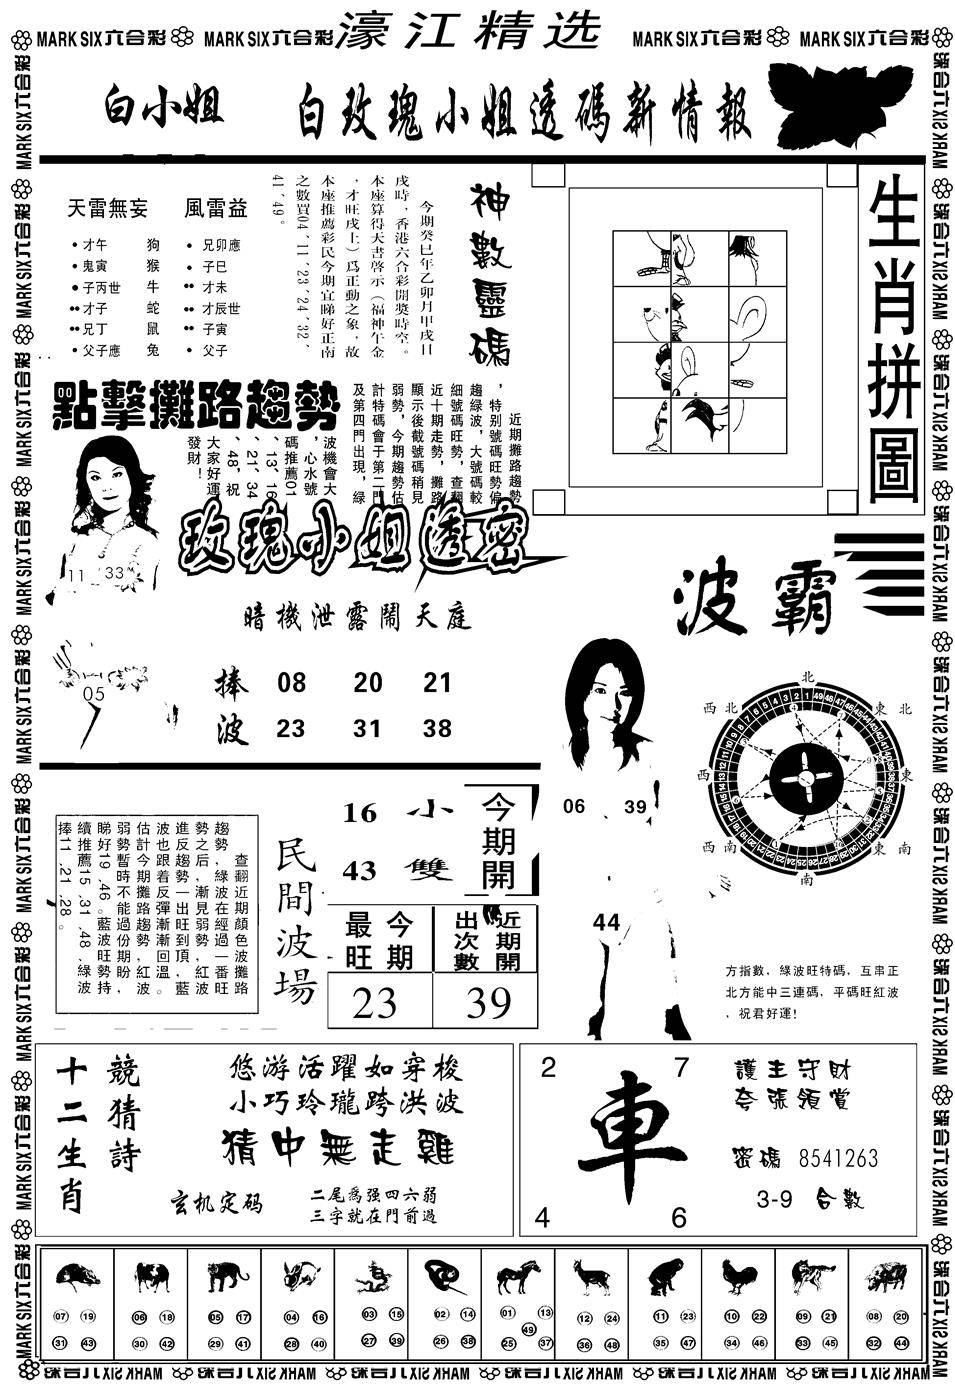 MARK SIX六合彩 MARK SIX六合彩 濠江精选 MARK SIX六合彩 MARK SIX六合彩
白小姐 白玫瑰小姐透碼新情報
天雷無妄 風雷益
才午 狗 兄卯應
鬼寅 猴 子巳
子丙世 牛 才未
才子 蛇 才辰世
兄丁 鼠 子寅
父子應 兔 父子
神數靈碼
今期癸巳年乙卯月甲戌日
戌時，香港六合彩開獎時空。
本座算得天書啓示（福神午金
，才旺戌土）爲正動之象，故
本座推薦彩民今期宜睇好正南
之數買04、11、23、24、32、
41、49。
生肖拼圖
點擊攤路趨勢
近期攤路趨勢
，特別號碼旺勢偏
趨綠波，大號碼較
細號碼旺勢，查翻
近十期走勢，攤路
顯示後截號碼稍見
弱勢，今期趨勢估
計特碼會于第二門
及第四門出現，綠
波機會大
，心水號
碼推薦01
、13、16
、21、34
、48，祝
大家好運
發財！
11 33
05
玫瑰小姐透密
暗機泄露鬧天庭
捧 08 20 21
波 23 31 38
波霸
06 39
44
北
西北 東北
西 東
西南 東南
南
方指數，綠波旺特碼，互串正
北方能中三連碼，平碼旺紅波
，祝君好運！
查翻近期顏色波攤路
趨勢，綠波在經過一番旺
勢之后，漸見弱勢，紅波
進反趨勢一出旺到頂，藍
波也跟着反彈漸回溫。
估計今期攤路趨勢紅波
弱勢暫時不能過份期盼，
睇好19、46。藍波旺勢持
續推薦15、31、48、綠波
捧11、21、28。
民間波場
16 小
43 雙
今期開
最旺 今期
出次數 近期開
23 39
十二生肖
競猜詩
悠游活躍如穿梭
小巧玲瓏跨洪波
猜中無走雞
玄机定码
二尾爲强四六弱
三字就在門前過
2 7
車
4 6
護主守財
夸張領賞
密碼 8541263
3-9 合數
07 19 06 18 05 17 04 16 03 15 02 14 01 13 12 24 11 23 10 22 09 21 08 20
49
31 43 30 42 29 41 28 40 27 39 26 38 25 37 36 48 35 47 34 46 33 45 32 44